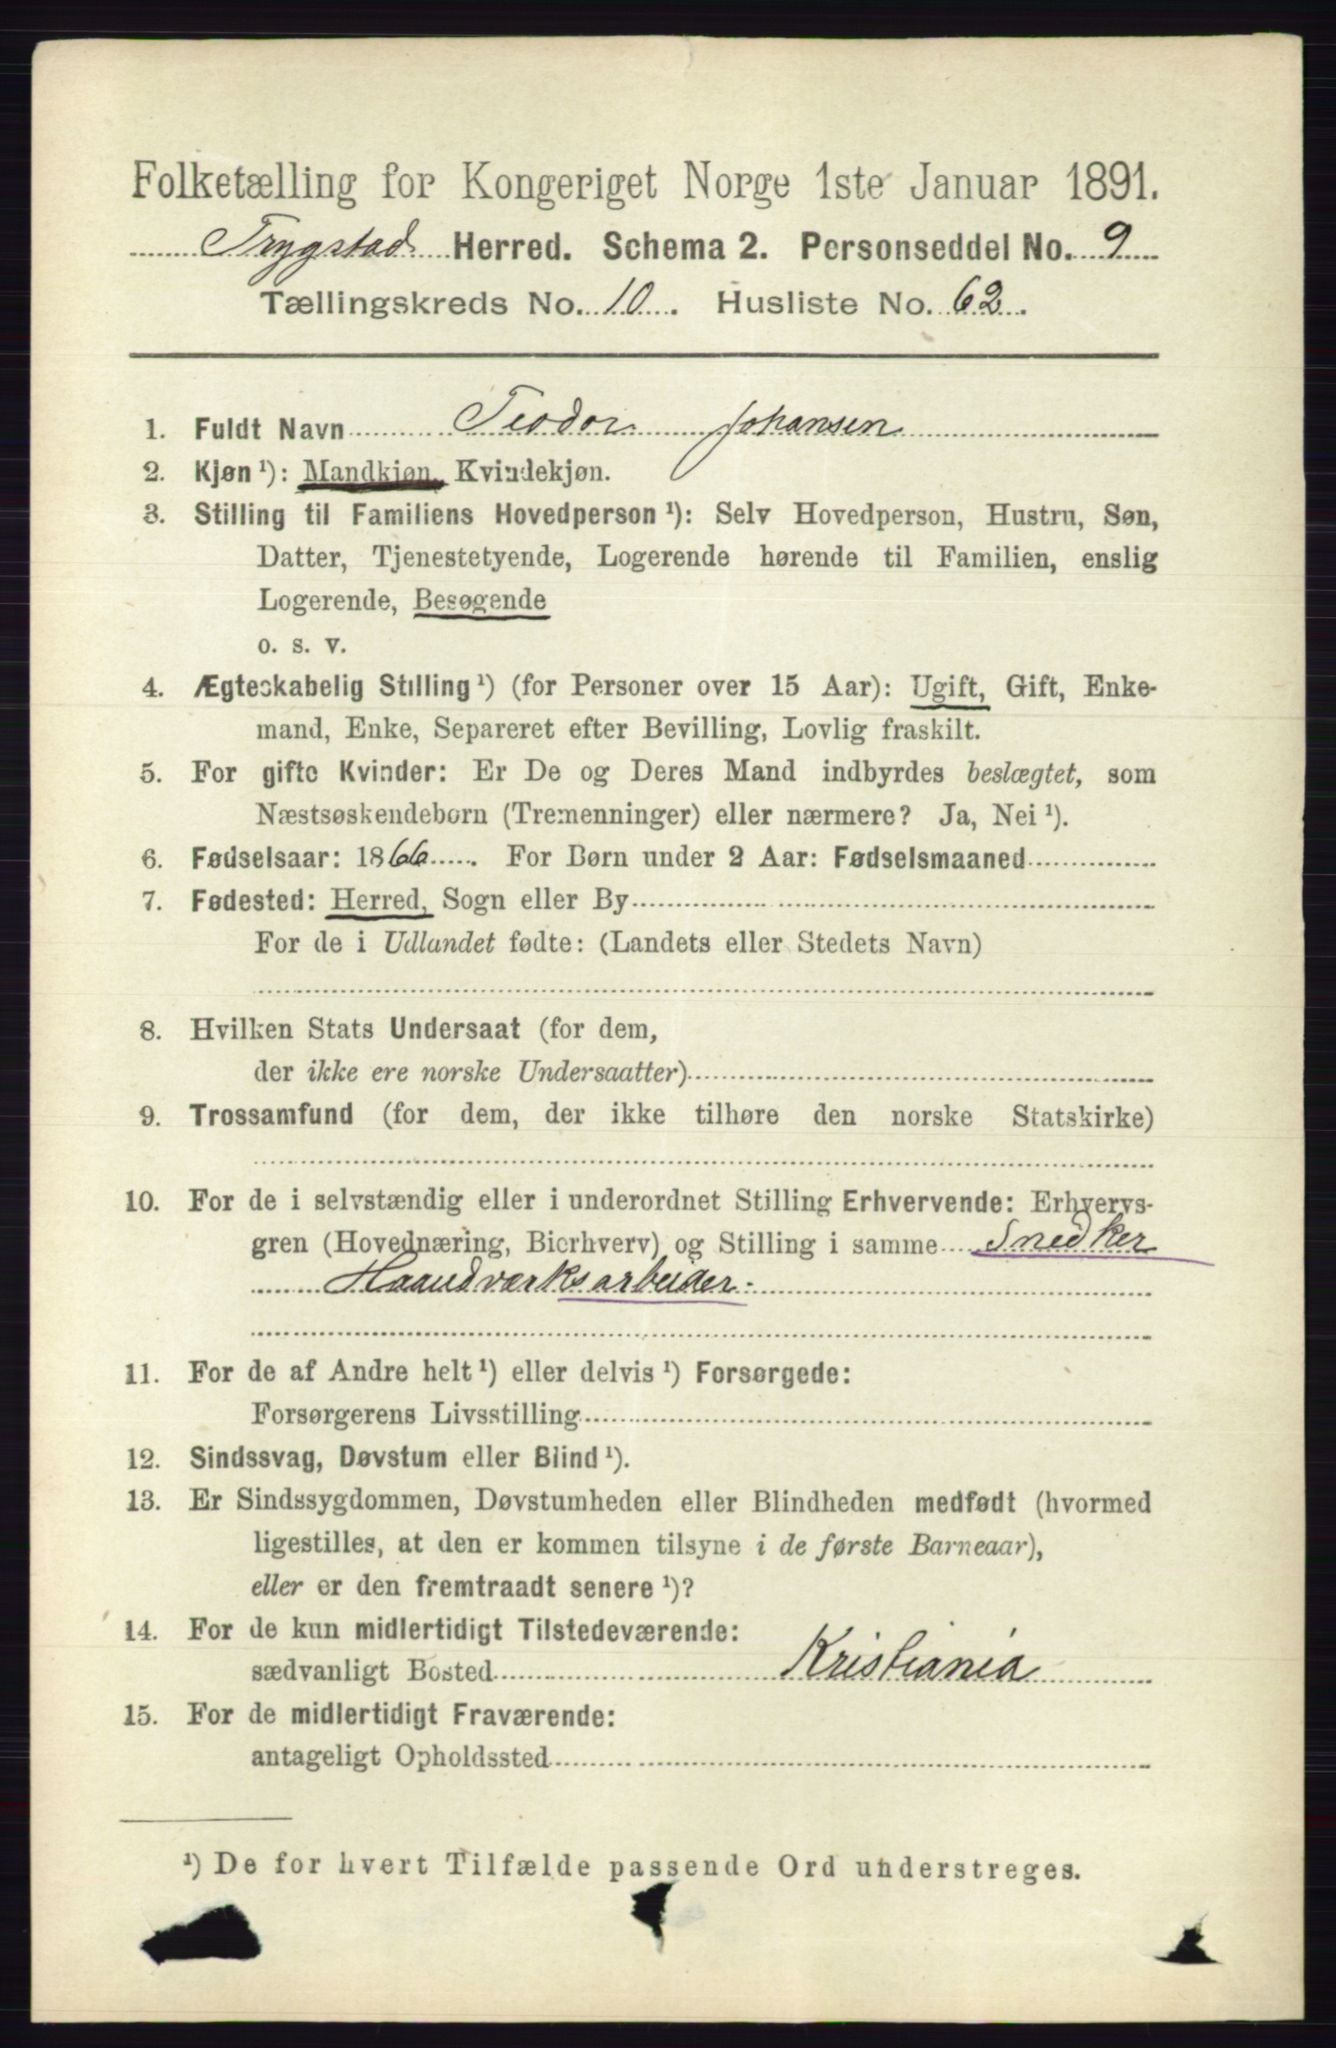 Folketælling for Kongeriget Norge 1ste Januar 1891.
Trygstad Herred. Schema 2. Personseddel No. 9
Tællingskreds No. 10. Husliste No. 62.
1. Fuldt Navn Teodor Johansen
2. Kjøn ¹): Mandkjøn, Kvindekjøn.
3. Stilling til Familiens Hovedperson ¹): Selv Hovedperson, Hustru, Søn,
Datter, Tjenestetyende, Logerende hørende til Familien, enslig
Logerende, Besøgende
o. s. v.
4. Ægteskabelig Stilling ¹) (for Personer over 15 Aar): Ugift, Gift, Enke-
mand, Enke, Separeret efter Bevilling, Lovlig fraskilt.
5. For gifte Kvinder: Er De og Deres Mand indbyrdes beslægtet, som
Næstsøskendebørn (Tremenninger) eller nærmere? Ja, Nei ¹).
6. Fødselsaar: 1866. For Børn under 2 Aar: Fødselsmaaned
7. Fødested: Herred, Sogn eller By
For de i Udlandet fødte: (Landets eller Stedets Navn)
8. Hvilken Stats Undersaat (for dem,
der ikke ere norske Undersaatter)
9. Trossamfund (for dem, der ikke tilhøre den norske Statskirke)
10. For de i selvstændig eller i underordnet Stilling Erhvervende: Erhvervs-
gren (Hovednæring, Bierhverv) og Stilling i samme Snedker
Haandværksarbeider.
11. For de af Andre helt ¹) eller delvis ¹) Forsørgede:
Forsørgerens Livsstilling
12. Sindssvag, Døvstum eller Blind ¹).
13. Er Sindssygdommen, Døvstumheden eller Blindheden medfødt (hvormed
ligestilles, at den er kommen tilsyne i de første Barneaar),
eller er den fremtraadt senere ¹)?
14. For de kun midlertidigt Tilstedeværende:
sædvanligt Bosted Kristiania
15. For de midlertidigt Fraværende:
antageligt Opholdssted
¹) De for hvert Tilfælde passende Ord understreges.